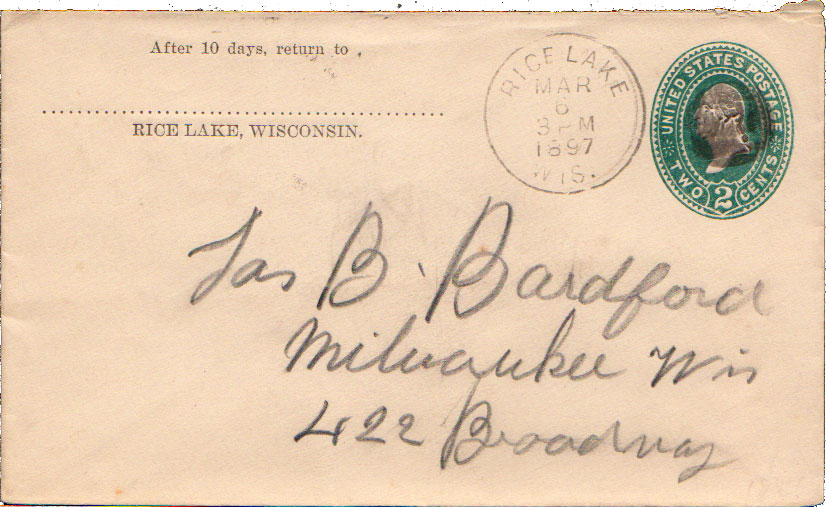 After 10 days, return to
RICE LAKE, WISCONSIN.
RICE LAKE
MAR
6
3 PM
1897
WIS.
UNITED STATES POSTAGE
TWO 2 CENTS
Jas B. Bardford
Milwaukee Wis
422 Broadway